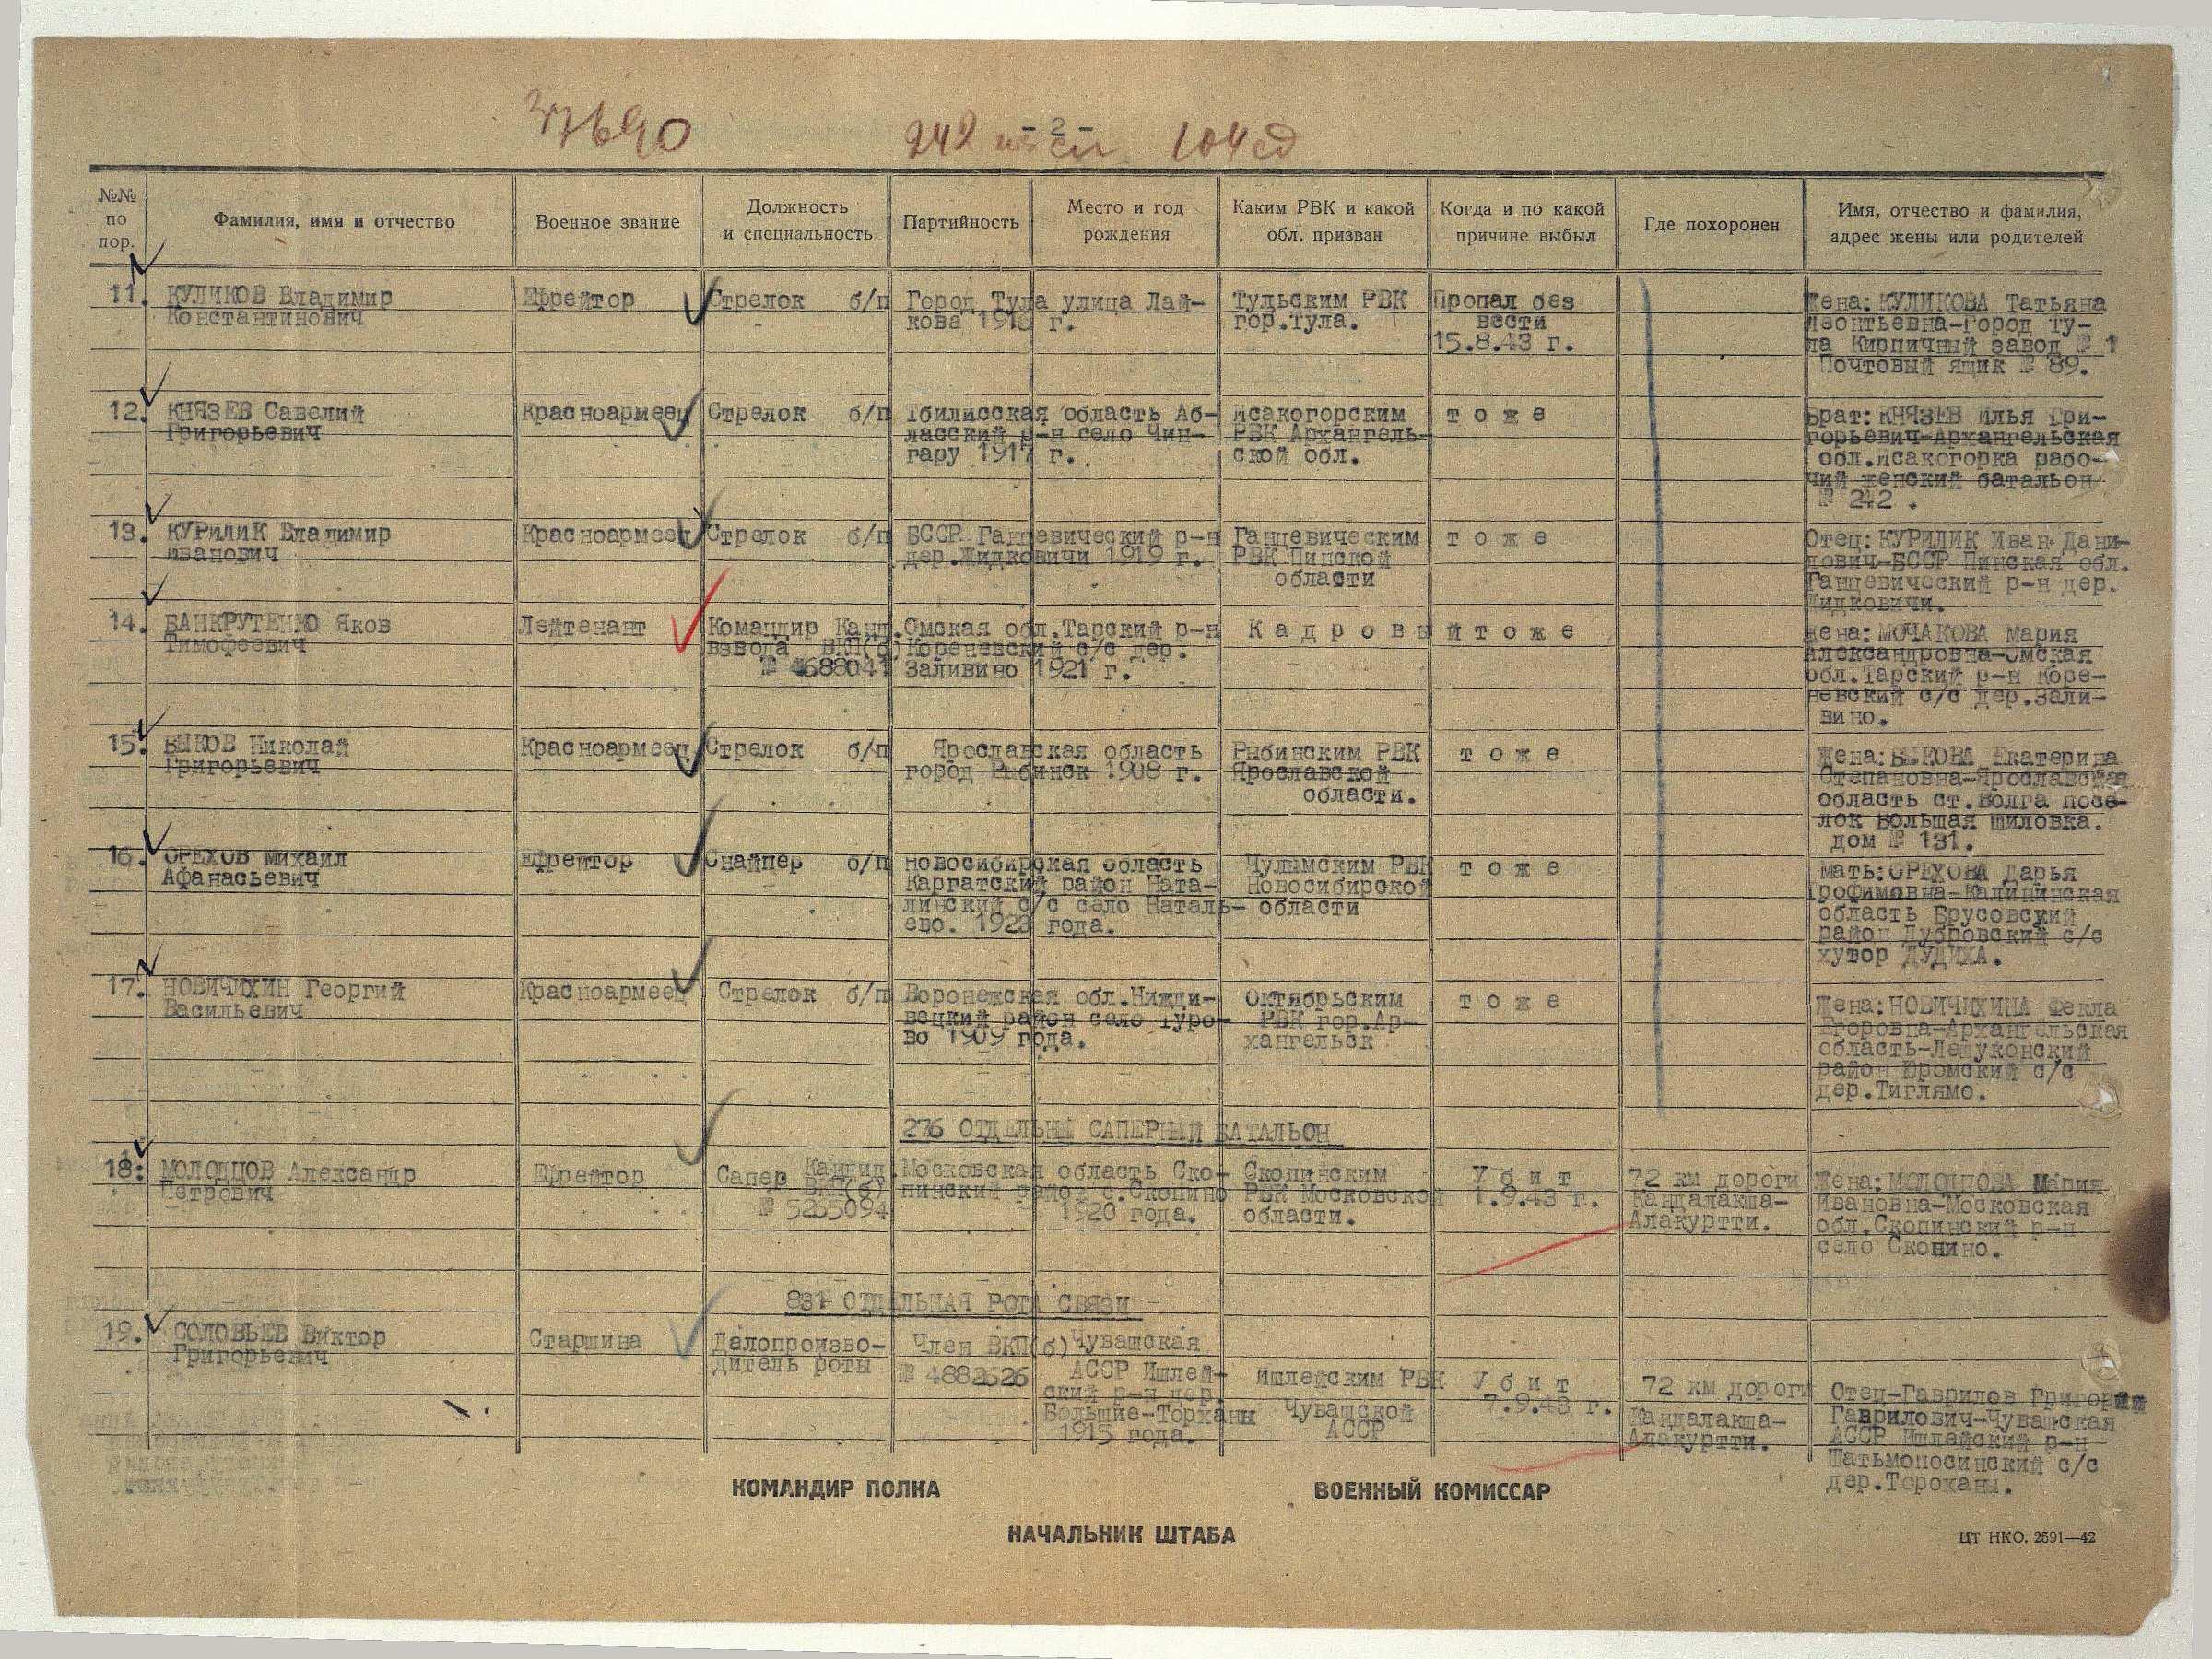 37690
- 2 -
242 сп 104 сд
№№ по пор.
Фамилия, имя и отчество
Военное звание
Должность и специальность
Партийность
Место и год рождения
Каким РВК и какой обл. призван
Когда и по какой причине выбыл
Где похоронен
Имя, отчество и фамилия, адрес жены или родителей
11. КУЛИКОВ Владимир
Константинович
Ефрейтор
Стрелок б/п
Город Тула улица Лай-
кова 1918 г.
Тульским РВК
гор.Тула.
Пропал без
вести
15.8.43 г.
Жена: КУЛИКОВА Татьяна
Леонтьевна-город Ту-
ла Кирпичный завод № 1
Почтовый ящик № 89.
12. КНЯЗЕВ Савелий
Григорьевич
Красноармеец
Стрелок б/п
Тбилисская область Аб-
ласский р-н село Чин-
гару 1917 г.
Исакогорским
РВК Архангель-
ской обл.
т о ж е
Брат: КНЯЗЕВ Илья Гри-
горьевич-Архангельская
обл.Исакогорка рабо-
чий женский батальон
№ 242 .
13. КУРИЛИК Владимир
Иванович
Красноармеец
Стрелок б/п
БССР Ганцевический р-н
дер.Жидковичи 1919 г.
Ганцевическим
РВК Пинской
области
т о ж е
Отец: КУРИЛИК Иван Дани-
лович-БССР Пинская обл.
Ганцевический р-н дер.
Жидковичи.
14. БАНКРУТЕНКО Яков
Тимофеевич
Лейтенант
Командир Канд.
взвода ВКП(б)
№ 4688041
Омская обл.Тарский р-н
Кореневский с/с дер.
Заливино 1921 г.
К а д р о в ы й
т о ж е
Жена: МОЧАКОВА Мария
Александровна-Омская
обл.Тарский р-н Коре-
невский с/с дер.Зали-
вино.
15. БЫКОВ Николай
Григорьевич
Красноармеец
Стрелок б/п
Ярославская область
город Рыбинск 1908 г.
Рыбинским РВК
Ярославской
области.
т о ж е
Жена: БЫКОВА Екатерина
Степановна-Ярославская
область ст.Волга посе-
лок Большая Шиловка.
дом № 131.
16. ОРЕХОВ Михаил
Афанасьевич
Ефрейтор
Снайпер б/п
Новосибирская область
Каргатский район Ната-
линский с/с село Наталь-
ево. 1923 года.
Чулымским РВК
Новосибирской
области
т о ж е
Мать: ОРЕХОВА Дарья
Трофимовна-Калининская
область Брусовский
район Дубровский с/с
хутор ДУДИХА.
17. НОВИЧИХИН Георгий
Васильевич
Красноармеец
Стрелок б/п
Воронежская обл.Нижди-
вецкий район село Туро-
во 1909 года.
Октябрьским
РВК гор.Ар-
хангельск
т о ж е
Жена: НОВИЧИХИНА Фекла
Егоровна-Архангельская
область-Лешуконский
район Юромский с/с
дер.Тиглямо.
276 ОТДЕЛЬНЫЙ САПЕРНЫЙ БАТАЛЬОН
18. МОЛОДЦОВ Александр
Петрович
Ефрейтор
Сапер Канпид
ВКП(б)
№ 5265094
Московская область Ско-
пинский район с.Скопино
1920 года.
Скопинским
РВК Московской
области.
У б и т
1.9.43 г.
72 км дороги
Кандалакша-
Алакуртти.
Жена: МОЛОДЦОВА Мария
Ивановна-Московская
обл.Скопинский р-н
село Скопино.
831 ОТДЕЛЬНАЯ РОТА СВЯЗИ
19. СОЛОВЬЕВ Виктор
Григорьевич
Старшина
Делопроизво-
дитель роты
Член ВКП(б)
№ 4882626
Чувашская
АССР Ишлей-
ский р-н дер.
Большие-Торханы
1915 года.
Ишлейским РВК
Чувашской
АССР
У б и т
7.9.43 г.
72 км дороги
Кандалакша-
Алакуртти.
Отец-Гаврилов Григорий
Гаврилович-Чувашская
АССР Ишлейский р-н
Шатьмопосинский с/с
дер.Тороханы.
КОМАНДИР ПОЛКА
ВОЕННЫЙ КОМИССАР
НАЧАЛЬНИК ШТАБА
ЦТ НКО. 2591—42